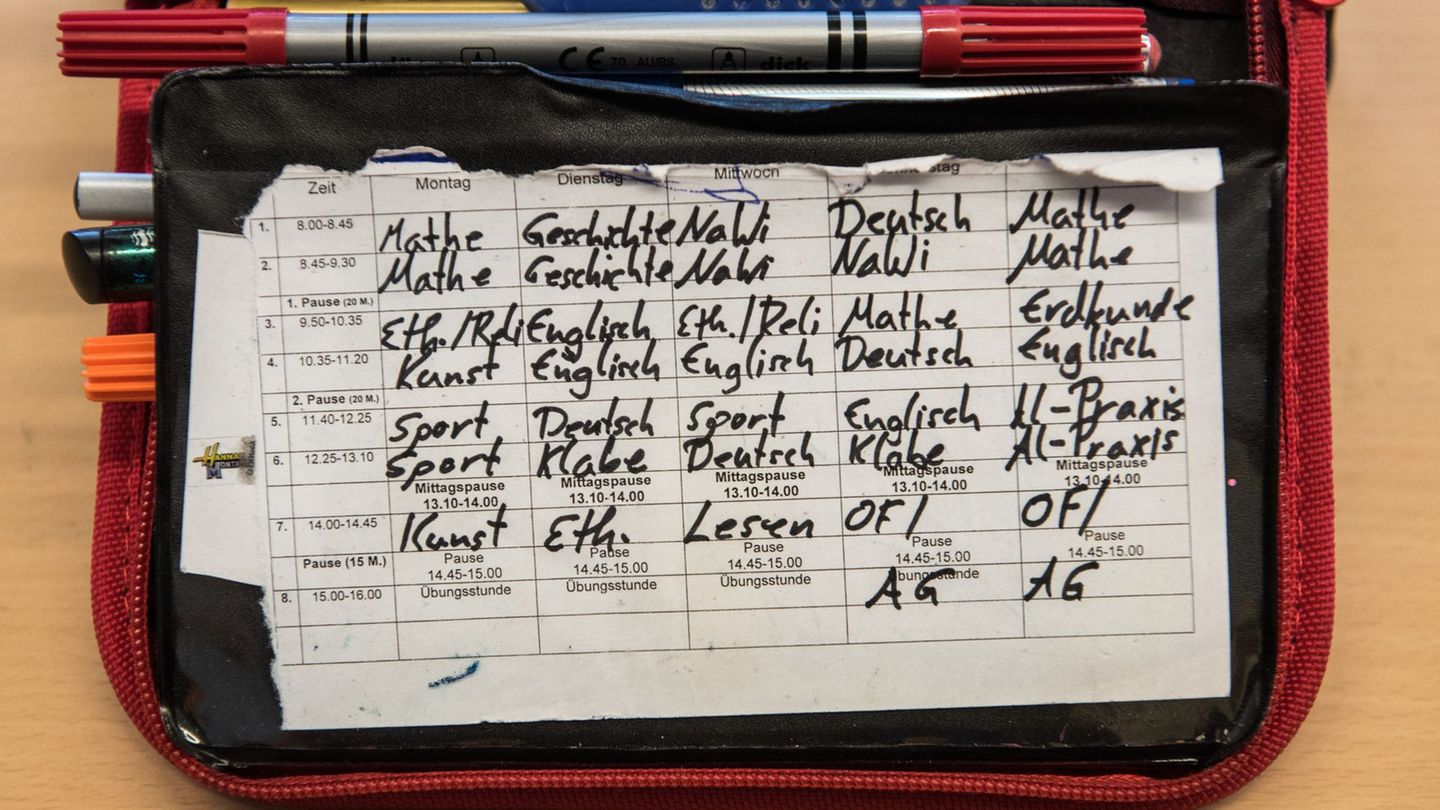 CE 70 AU/BS A dick
Zeit Montag Dienstag Mittwoch stag
1. 8.00-8.45 Mathe Geschichte NaWi Deutsch Mathe
2. 8.45-9.30 Mathe Geschichte NaWi NaWi Mathe
1. Pause (20 M.)
3. 9.50-10.35 Eth./Reli Englisch Eth./Reli Mathe Erdkunde
4. 10.35-11.20 Kunst Englisch Englisch Deutsch Englisch
2. Pause (20 M.)
5. 11.40-12.25 Sport Deutsch Sport Englisch Al-Praxis
6. 12.25-13.10 Sport Klabe Deutsch Klabe Al-Praxis
Mittagspause Mittagspause Mittagspause Mittagspause Mittagspause
13.10-14.00 13.10-14.00 13.10-14.00 13.10-14.00 13.10-14.00
7. 14.00-14.45 Kunst Eth. Lesen OF/ OF/
Pause (15 M.) Pause Pause Pause Pause Pause
14.45-15.00 14.45-15.00 14.45-15.00 14.45-15.00 14.45-15.00
8. 15.00-16.00 Übungsstunde Übungsstunde Übungsstunde Übungsstunde AG AG
Hannah Montana